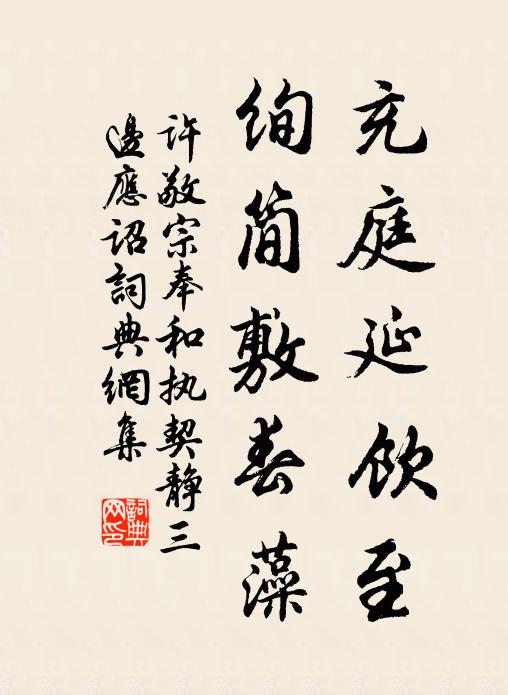 充庭延飲至
絢簡敷春藻
許敬宗奉和执契靜三
邊應詔詞典網集
詞典
网印